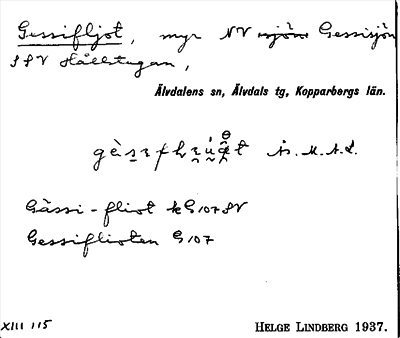 Gessifljot, myr NV sjön Gessisjön
SSV Hålltugan,
Älvdalens sn, Älvdals tg, Kopparbergs län.
Gässi-fliot kG107SV
Gessiflioten G107
XIII 115
HELGE LINDBERG 1937.